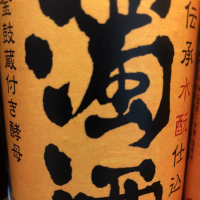 伝承水酛仕込
濁酒
金鼓蔵付吉酵母